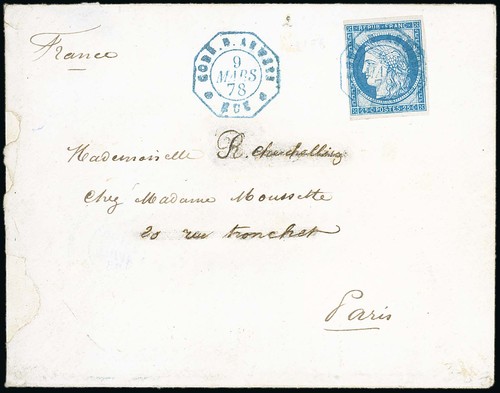 France
CORR. D. ARMÉES
9
MARS
78
REPUB. FRANC.
25 C. POSTES 25 C.
Mademoiselle R.
Chez Madame Moussette
20 rue tronchet
Paris